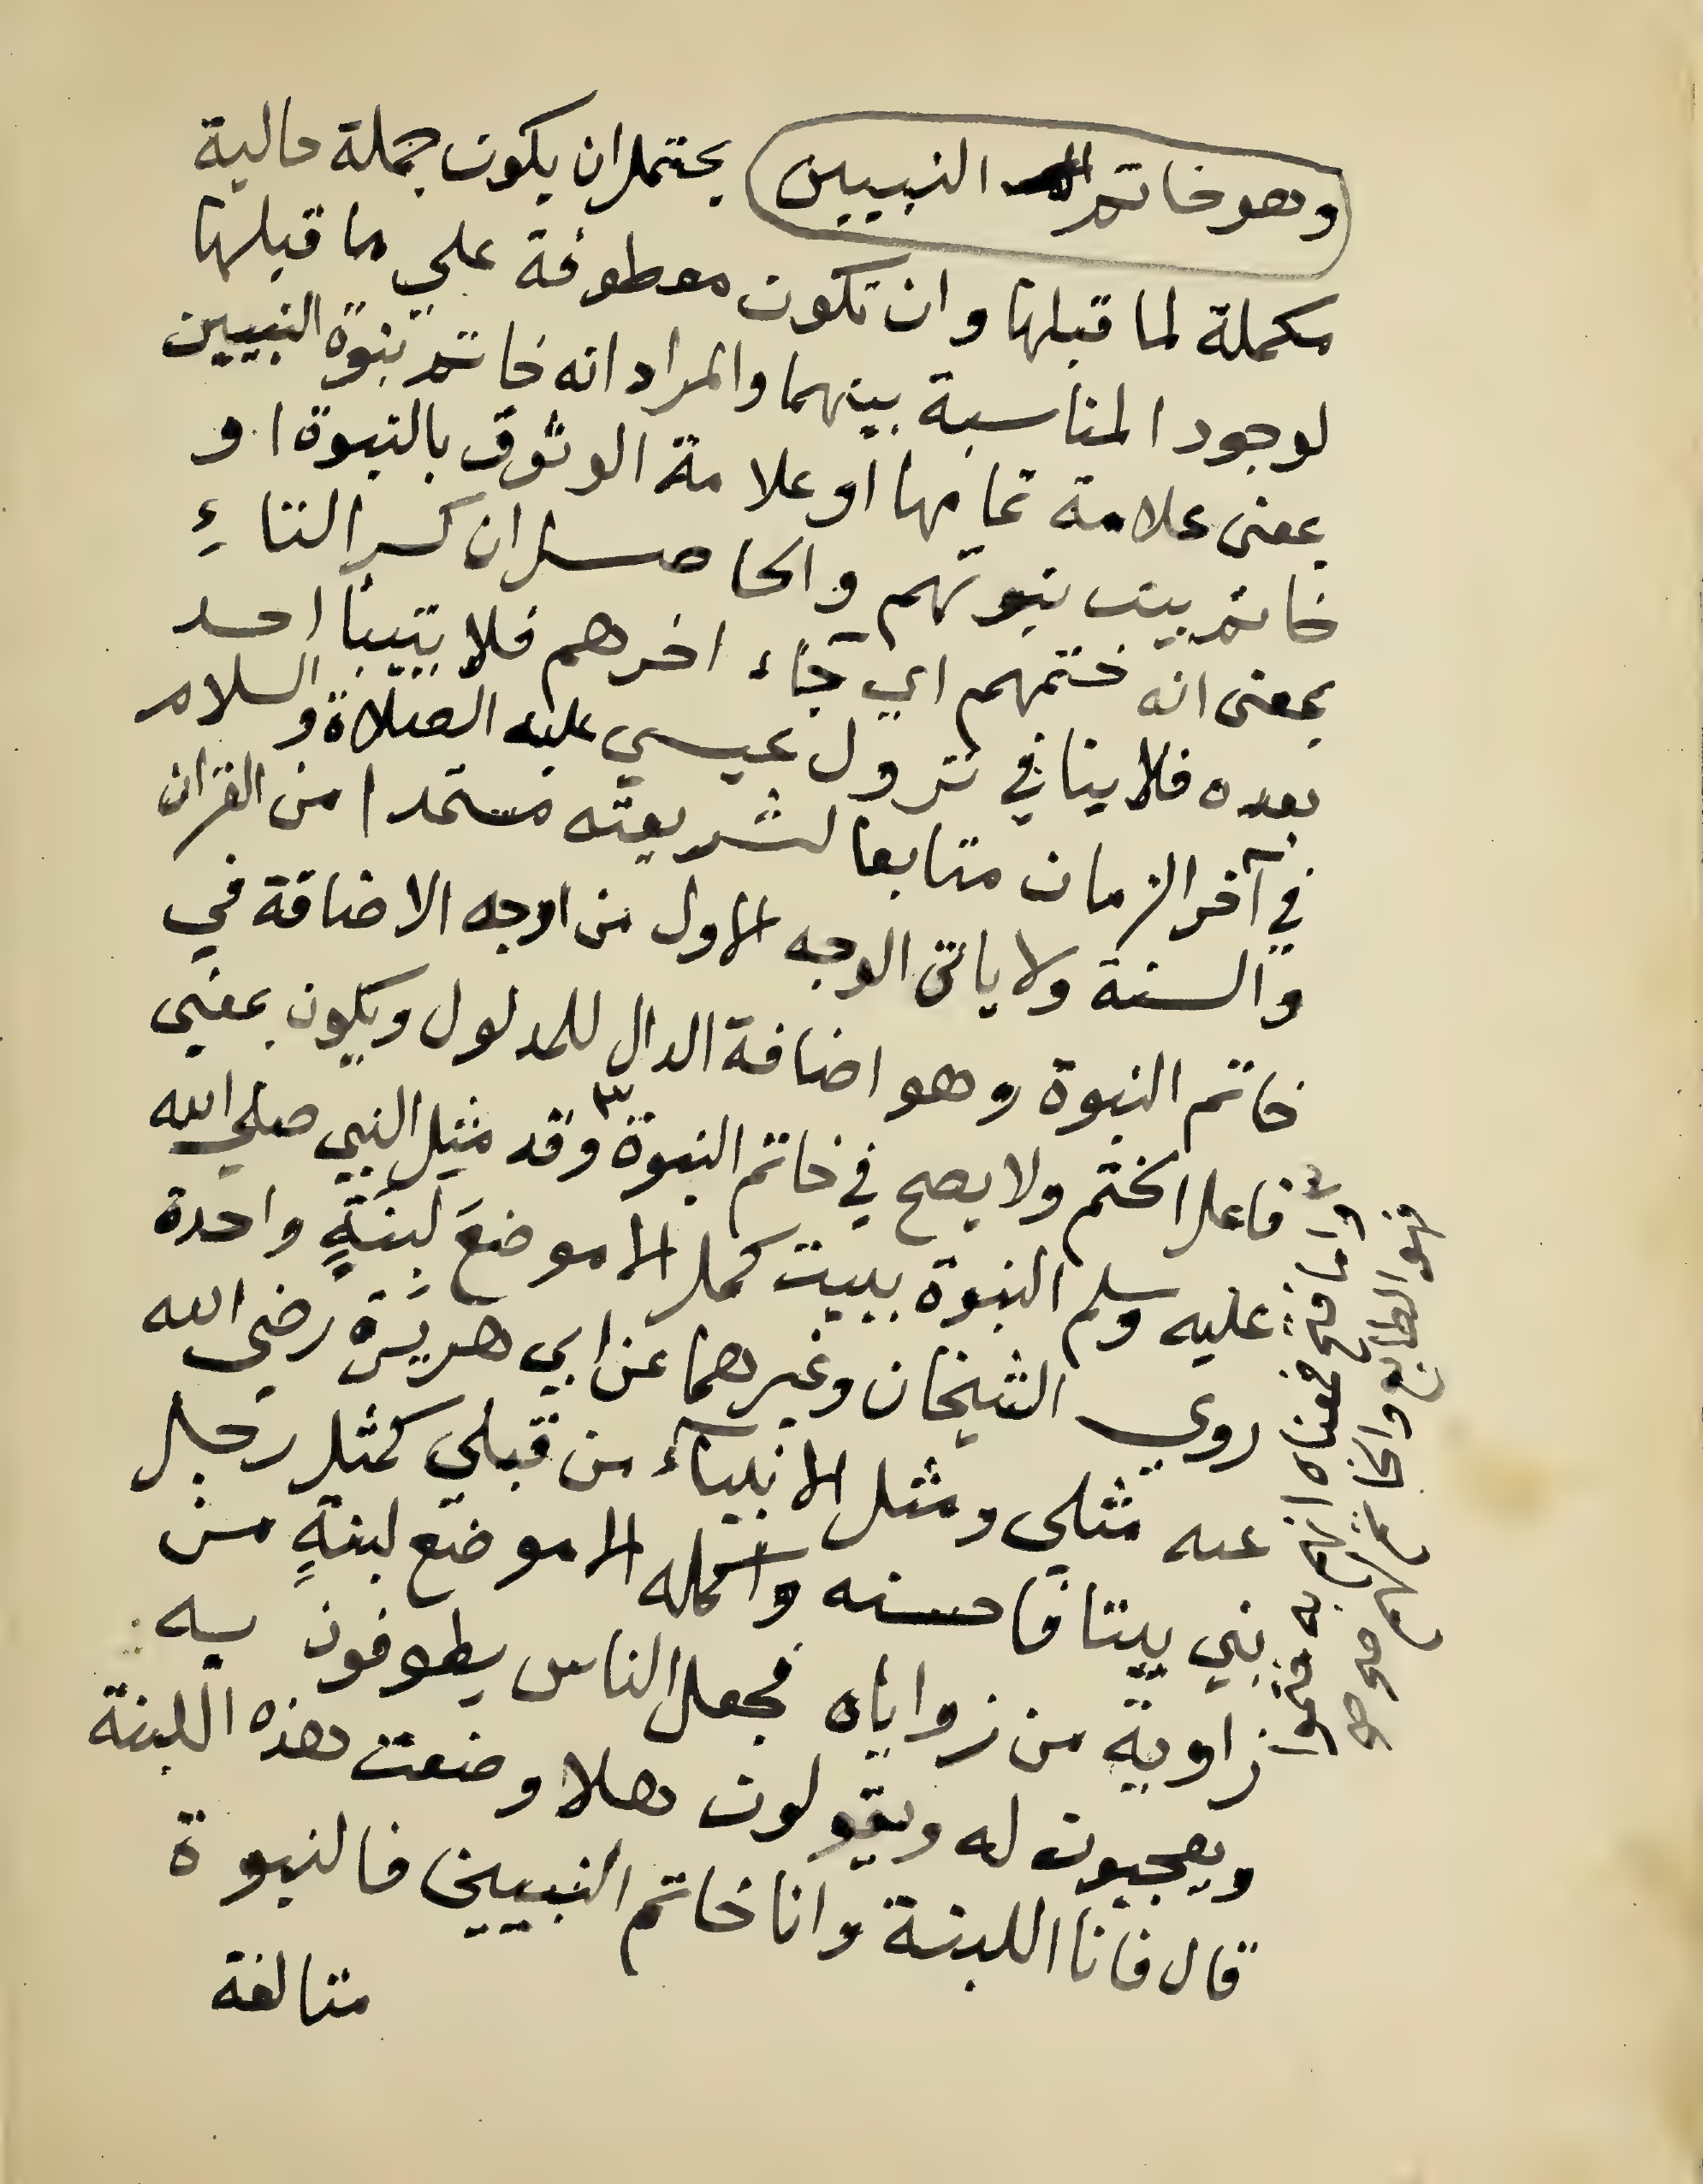 وهو خاتم النبيين يحتمل ان يكون جملة حالية
مكملة لما قبلها وان تكون معطوفة علي ما قبلها
لوجود المناسبة بينهما والمراد انه خاتم نبوة النبيين
بمعنى علامة تمامها او علامة الوثوق بالنبوة او
خاتم بيت نبوتهم والحاصل ان كسر التاءِ
بمعنى انه ختمهم اي جاء اخرهم فلا يتنبأ احد
بعده فلا ينافي نزول عيسي عليه الصلاة والسلام
في آخر الزمان متابعا لشريعته مستمدا من القران
والسنة ولا ياتى الوجه الاول من اوجه الاضافة في
خاتم النبوة وهو اضافة الدال للمدلول ويكون بمعني
فاعل الختم ولا يصح في خاتم النبوة ٣ وقد مثيل النبي صلي الله
عليه وسلم النبوة ببيت كمل الا موضعَ لبنةٍ واحدة
روي الشيخان وغيرهما عن ابي هريرة رضي الله
عنه مثلي ومثل الانبيآء من قبلي كمثل رجل
بني بيتا فاحسنه واكمله الا موضع لبنةٍ من
زاوية من زواياه فجعل الناس يطوفون به
ويعجبون له ويقولون هلا وضعت هذه اللبنة
قال فانا اللبنة وانا خاتم النبيين فالنبوة
متالفة
٣ واما فتح فمعناه انهم به ختموا
فهو الطابع والخاتم لهم صح